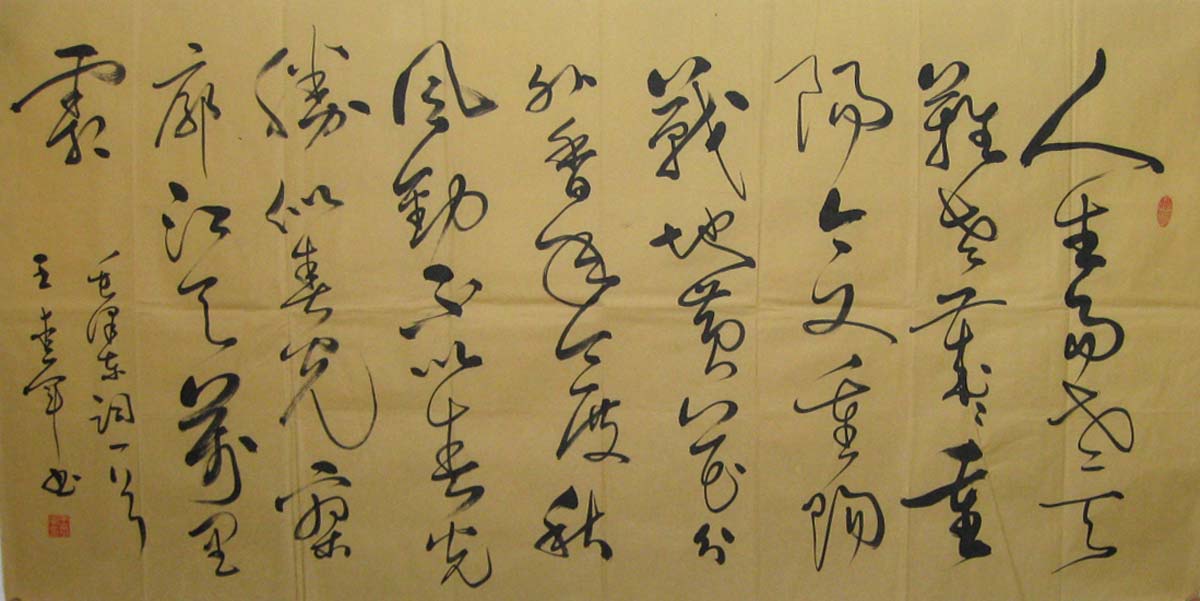 人生易老天
難老歲〻重
陽今又重陽
戰地黃花分
外香一年一度秋
風勁不似春光
勝似春光寥
廓江天萬里
霜
毛澤东詞一首
王军书